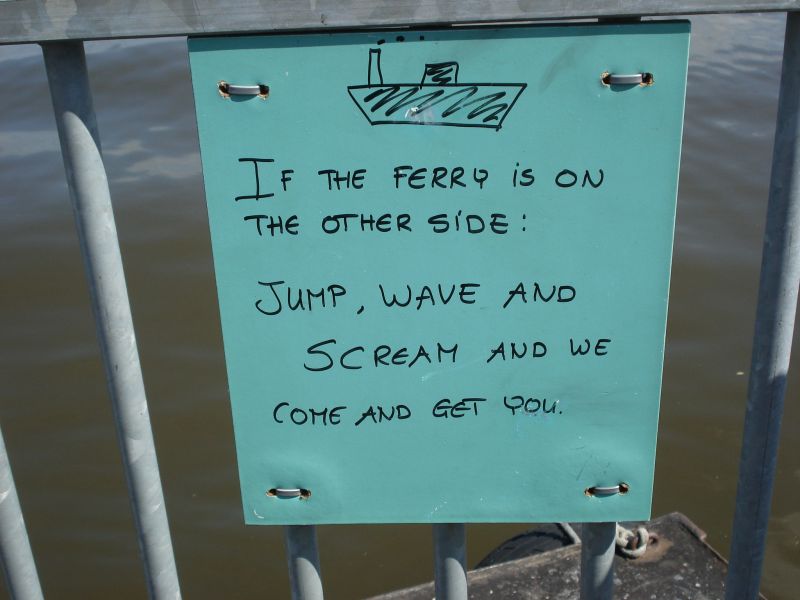 IF THE FERRY is ON
THE OTHER SIDE:
JUMP, WAVE AND
SCREAM AND WE
COME AND GET YOU.